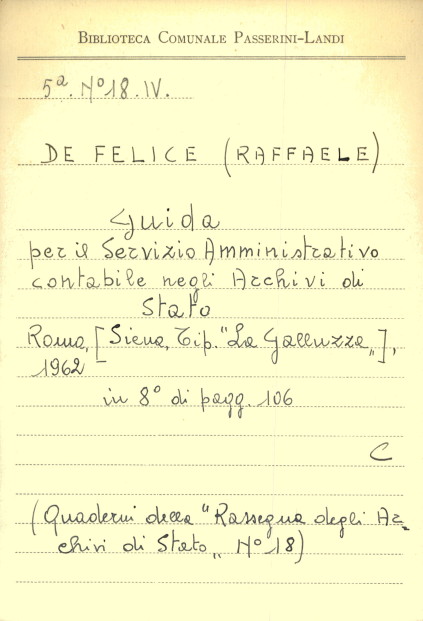 BIBLIOTECA COMUNALE PASSERINI-LANDI
5ª. Nº 18. IV.
DE FELICE (RAFFAELE)
Guida
per il Servizio Amministrativo
contabile negli Archivi di
Stato
Roma, [Siena, Tip. "La Galluzza„],
1962
in 8° di pagg. 106
C
(Quaderni della "Rassegna degli Ar=
chivi di Stato„ Nº 18)